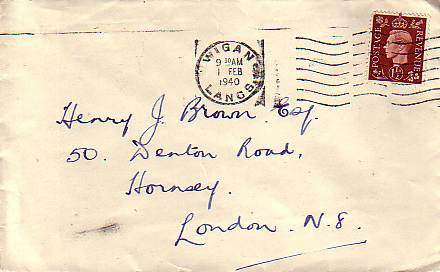 WIGAN
9 30AM
1 FEB
1940
LANCS.
POSTAGE
REVENUE
1½
D
Henry J. Brown Esq.
50. Denton Road,
Hornsey.
London. N.8.